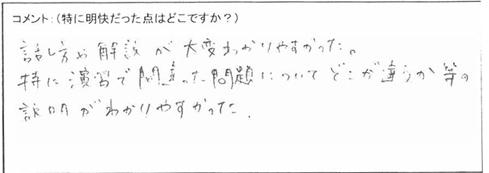 コメント：（特に明快だった点はどこですか？）
話し方や解説が大変わかりやすかった。
特に演習で間違った問題についてどこが違うか等の
説明がわかりやすかった.